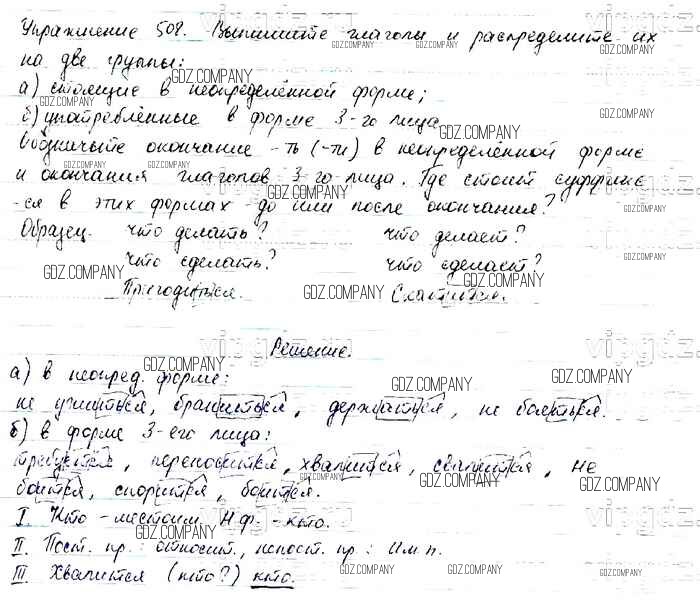 Упражнение 508. Выпишите глаголы и распределите их
на две группы:
а) стоящие в неопределённой форме;
б) употреблённые в форме 3-го лица
Обозначьте окончание -ть (-ти) в неопределённой форме
и окончания глаголов 3-го лица. Где стоит суффикс
-ся в этих формах - до или после окончания?
Образец. что делать? что делает?
что сделать? что сделает?
Пригодиться. Скатится.
Решение.
а) в неопред. форме:
не учиться, браниться, держаться, не бояться.
б) в форме 3-его лица:
требуется, переносится, хвалится, свалится, не
боится, спорится, боится.
I. Кто - местоим. Н.ф. - кто.
II. Пост. пр.: относит., непост. пр.: Им.п.
III Хвалится (кто?) кто.
GDZ.COMPANY